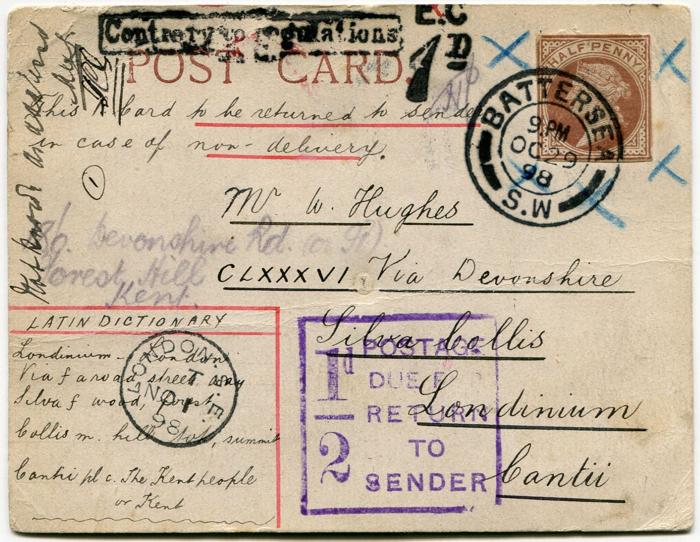 Contrary to regulations
E.C
1D
POST CARD.
HALFPENNY
This Card to be returned to sender
in case of non-delivery.
BATTERSEA
9 PM
OC 29
98
S.W
1
Mr W. Hughes
CLXXXVI Via Devonshire
Silva Collis
Londinium
Cantii
Devonshire Rd. (or St).
Forest Hill
Kent.
LATIN DICTIONARY
Londinium - London
Via f a road, street, way
Silva f wood, forest
Collis m. hill, summit
Cantii pl c. The Kent people
or Kent
LONDON. S.E.
T
NO 1
98
1D/2
POSTAGE
DUE FOR
RETURN
TO
SENDER